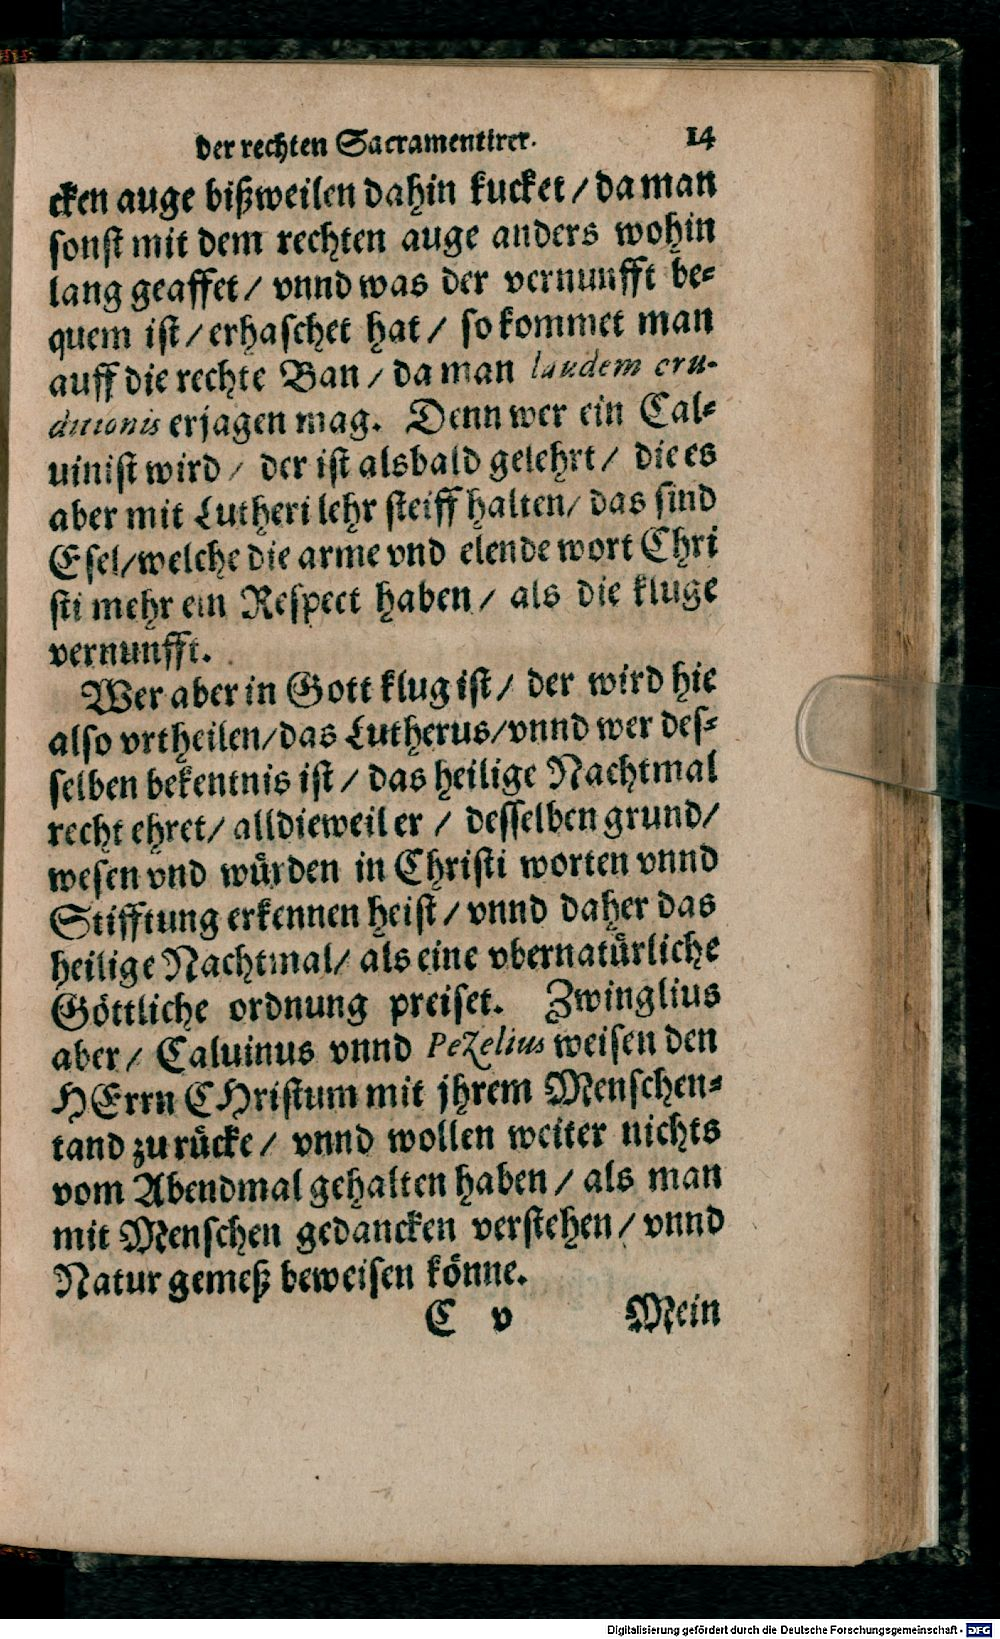 der rechten Sacramentirer. 14
cken auge bißweilen dahin kucket / da man
sonst mit dem rechten auge anders wohin
lang geaffet / vnnd was der vernunfft be⸗
quem ist / erhaschet hat / so kommet man
auff die rechte Ban / da man laudem eru-
ditionis erjagen mag. Denn wer ein Cal⸗
uinist wird / der ist alsbald gelehrt / die es
aber mit Lutheri lehr steiff halten / das sind
Esel / welche die arme vnd elende wort Chri
sti mehr ein Respect haben / als die kluge
vernunfft.
Wer aber in Gott klug ist / der wird hie
also vrtheilen / das Lutherus / vnnd wer des⸗
selben bekentnis ist / das heilige Nachtmal
recht ehret / alldieweil er / desselben grund /
wesen vnd würden in Christi worten vnnd
Stifftung erkennen heist / vnnd daher das
heilige Nachtmal / als eine vbernatürliche
Göttliche ordnung preiset. Zwinglius
aber / Caluinus vnnd Pezelius weisen den
HErrn CHristum mit jhrem Menschen⸗
tand zu rücke / vnnd wollen weiter nichts
vom Abendmal gehalten haben / als man
mit Menschen gedancken verstehen / vnnd
Natur gemeß beweisen könne.
C v Mein
Digitalisierung gefördert durch die Deutsche Forschungsgemeinschaft - DFG